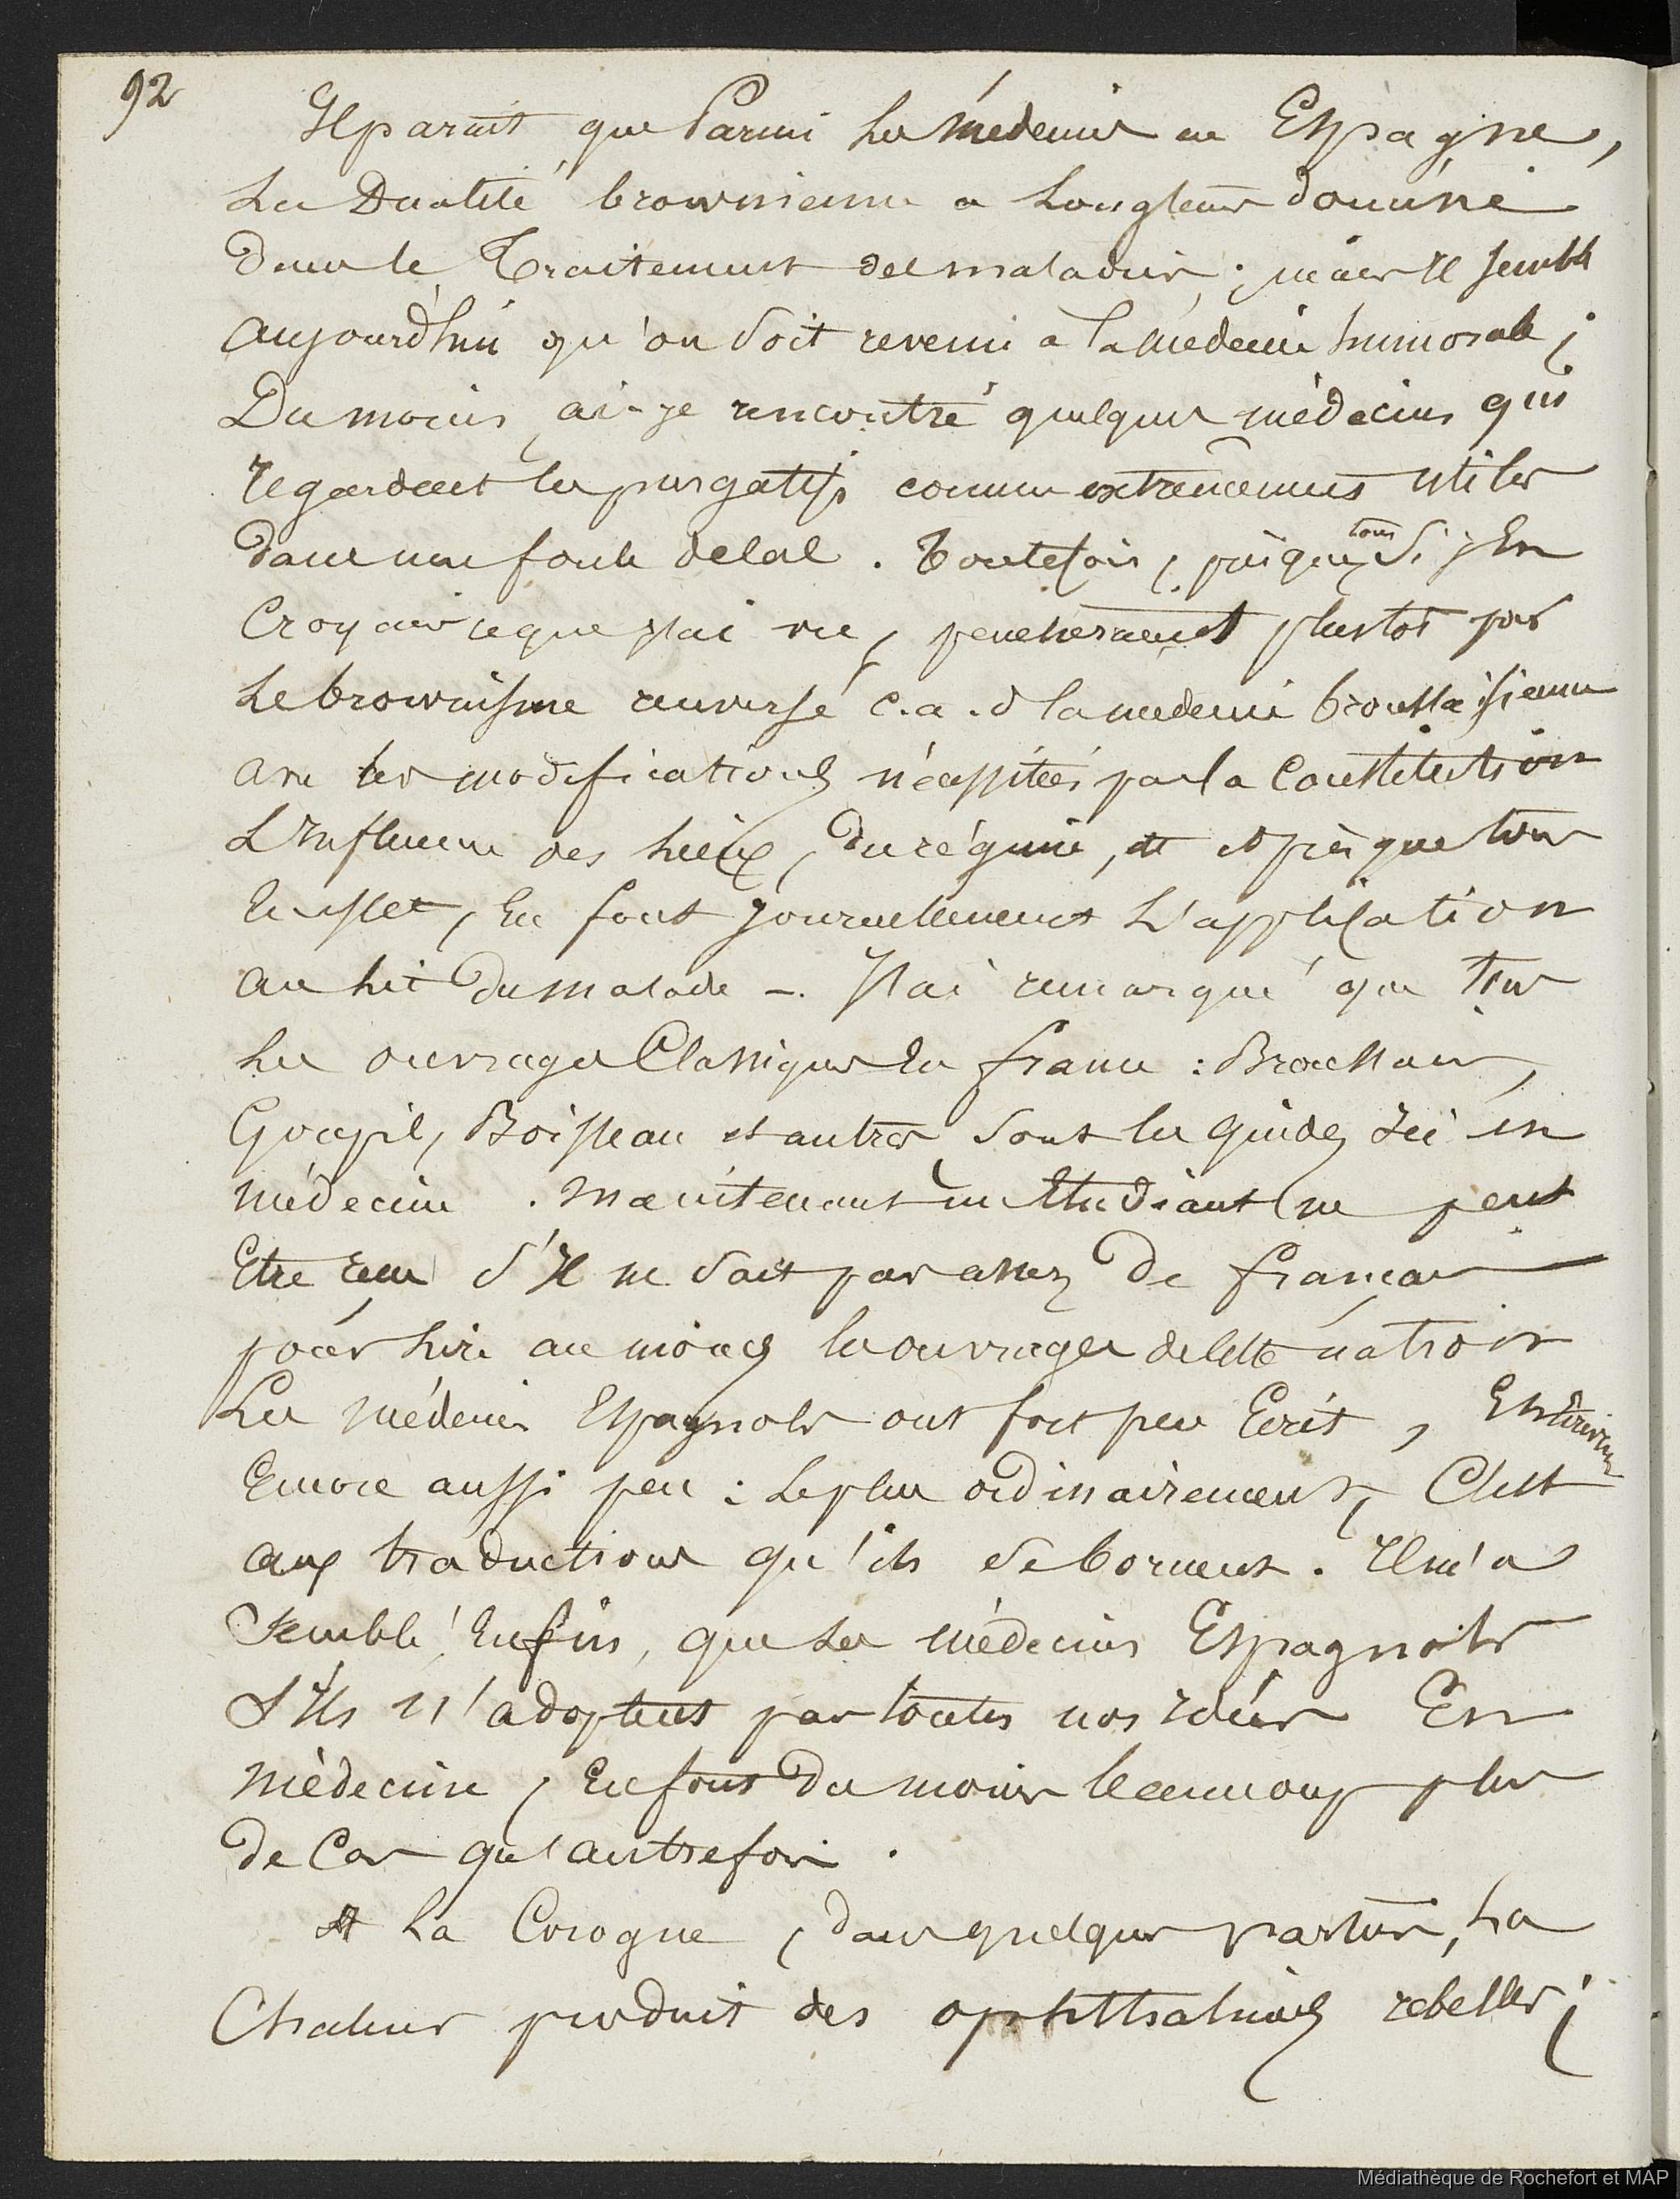 92
Il parait que Parmi Les médecins en Espagne,
La Dualité brownienne a Longtems dominé
Dans le Traitement des maladies ; mais Il semble
aujourd'hui qu'on soit revenu a la médecine humorale ;
Du moins, ai-je rencontré quelques médecins qui
regardent les purgatifs comme extrêmement utiles
dans une foule de cas. Toutefois, presque tous, si j'En
Croyais ce que j'ai vu, pencheraient plustot pour
Le brownisme renversé c.a.d la medecine broussaisienne
avec les modifications nécessitées par la Constitution
L'Influence des Lieux, Du régime, et presque tous
En effet, En font Journellement L'application
au Lit Du malade -. J'ai remarqué que tous
Les ouvrages Classiques En france : Broussais,
Goupil, Boisseau et autres Sont les guides Ici en
médecine. Maintenant un Etudiant ne peut
Etre reçu s'Il ne sait pas assez De français
pour Lire au moins les ouvrages de cette nation
Les médecins Espagnols ont fort peu Ecrit, Et Ecrivent
Encore aussi peu : Le plus ordinairement, C'est
aux traductions qu'ils se bornent. Il m'a
semblé, Enfin, que Les médecins Espagnols
S'Ils n'adoptent pas toutes nos Idées En
médecine, En font Du moins beaucoup plus
de Cas qu'autrefois.
A La Corogne, dans quelques parties, La
Chaleur produit des ophtthalmies rebelles ;
Médiathèque de Rochefort et MAP